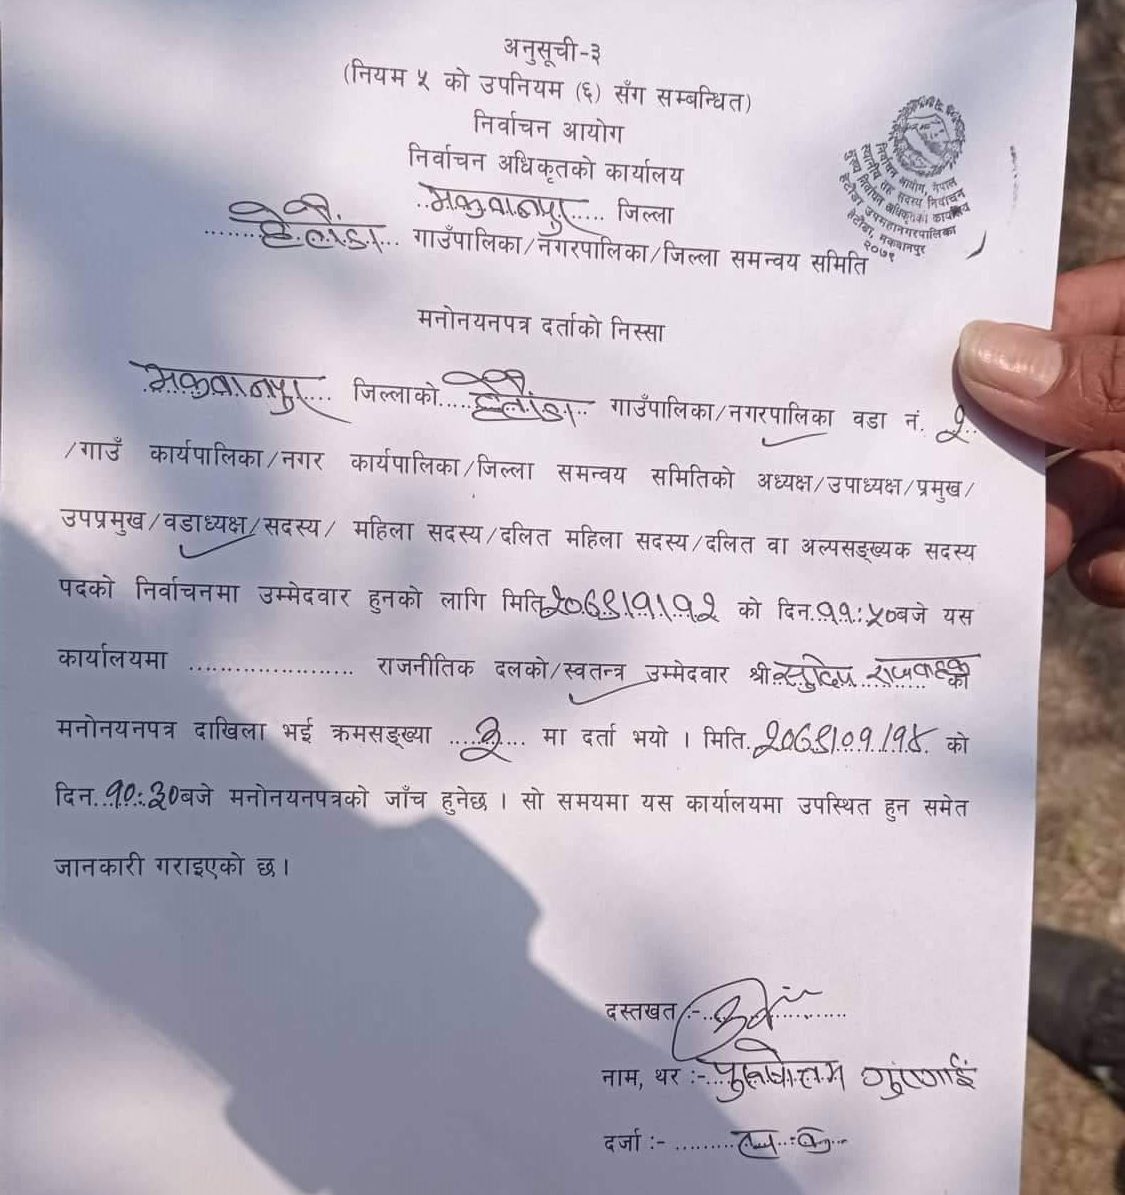 अनुसूची-३
(नियम ५ को उपनियम (६) सँग सम्बन्धित)
निर्वाचन आयोग
निर्वाचन अधिकृतको कार्यालय
..मकवानपुर..... जिल्ला
........हेटौंडा... गाउँपालिका/नगरपालिका/जिल्ला समन्वय समिति
निर्वाचन आयोग, नेपाल
स्थानीय तह सदस्य निर्वाचन
मुख्य निर्वाचन अधिकृतको कार्यालय
हेटौंडा उपमहानगरपालिका
हेटौंडा, मकवानपुर
मनोनयनपत्र दर्ताको निस्सा
मकवानपुर.... जिल्लाको....हेटौंडा.. गाउँपालिका/नगरपालिका वडा नं. २..
/गाउँ कार्यपालिका/नगर कार्यपालिका/जिल्ला समन्वय समितिको अध्यक्ष/उपाध्यक्ष/प्रमुख/
उपप्रमुख/वडाध्यक्ष/सदस्य/ महिला सदस्य/दलित महिला सदस्य/दलित वा अल्पसङ्ख्यक सदस्य
पदको निर्वाचनमा उम्मेदवार हुनको लागि मिति २०७९।१।१२ को दिन ११:५०बजे यस
कार्यालयमा .................... राजनीतिक दलको/स्वतन्त्र उम्मेदवार श्री सुदिप राजवाहक को
मनोनयनपत्र दाखिला भई क्रमसङ्ख्या ....३.... मा दर्ता भयो । मिति.२०७९।०१।१४. को
दिन १०:३०बजे मनोनयनपत्रको जाँच हुनेछ । सो समयमा यस कार्यालयमा उपस्थित हुन समेत
जानकारी गराइएको छ ।
दस्तखत :-
नाम, थर :-..पुरुषोत्तम
दर्जा :-